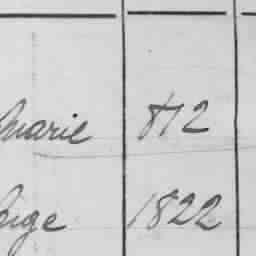 Marie 812
1822